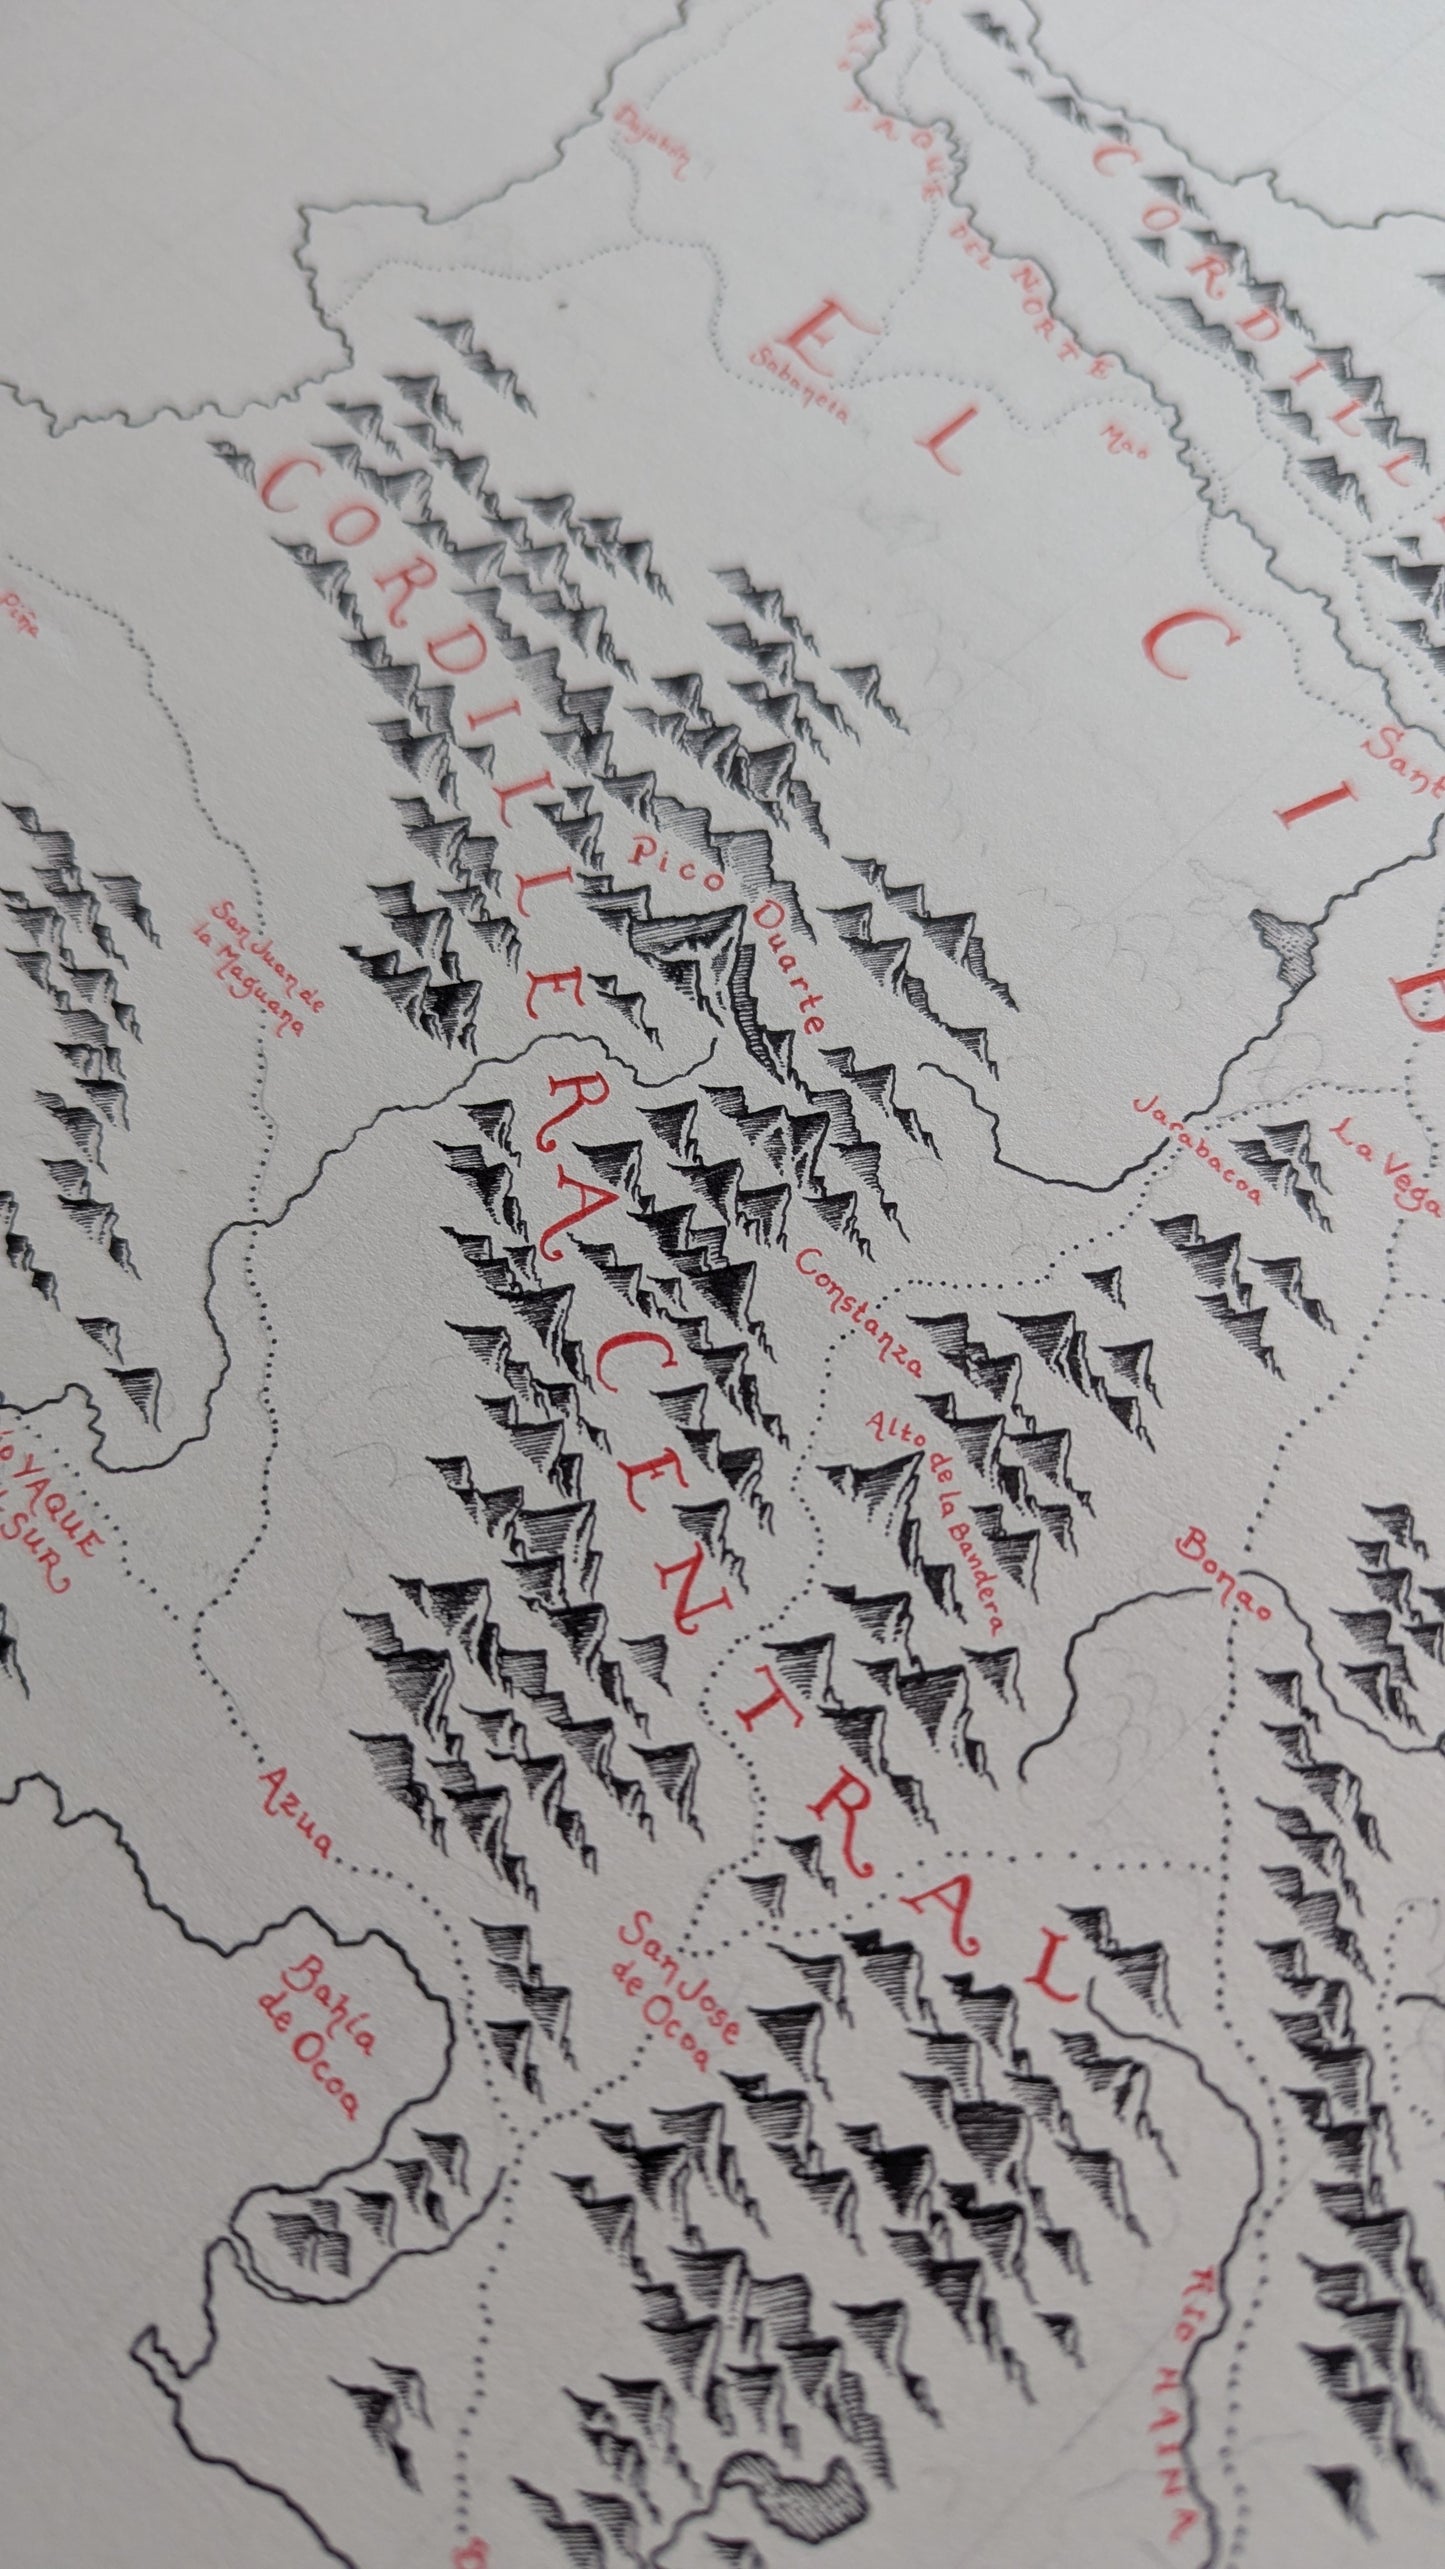 Dajabón
YAQUE DEL NORTE
CORDILL
EL CIB
Sabaneta
Mao
Piña
CORDILLERA CENTRAL
Sant
Pico Duarte
San Juan de
la Maguana
Jarabacoa
La Vega
Constanza
Alto de la Bandera
YAQUE
SUR
Bonao
Azua
San Jose
de Ocoa
Bahía
de Ocoa
Río HAINA